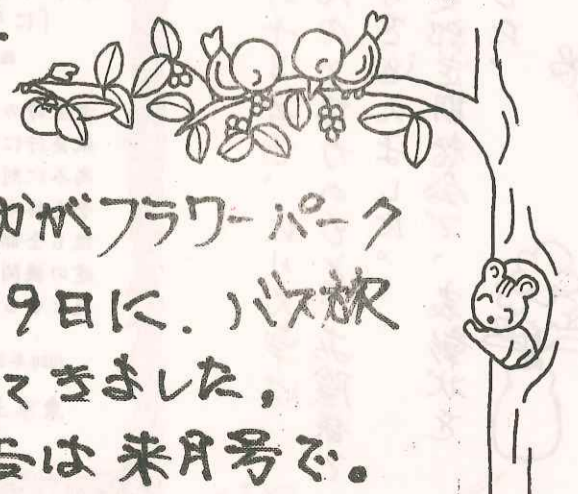 かがフラワーパーク
9日に.バス旅
てきました,
は来月号で。